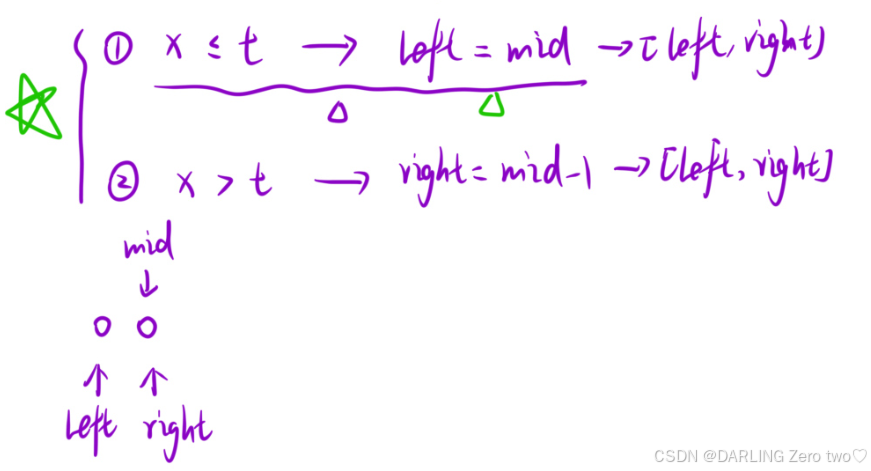 ① x ≤ t → left = mid → [left, right]
② x > t → right = mid-1 → [left, right]
mid
left right
CSDN @DARLING Zero two♡